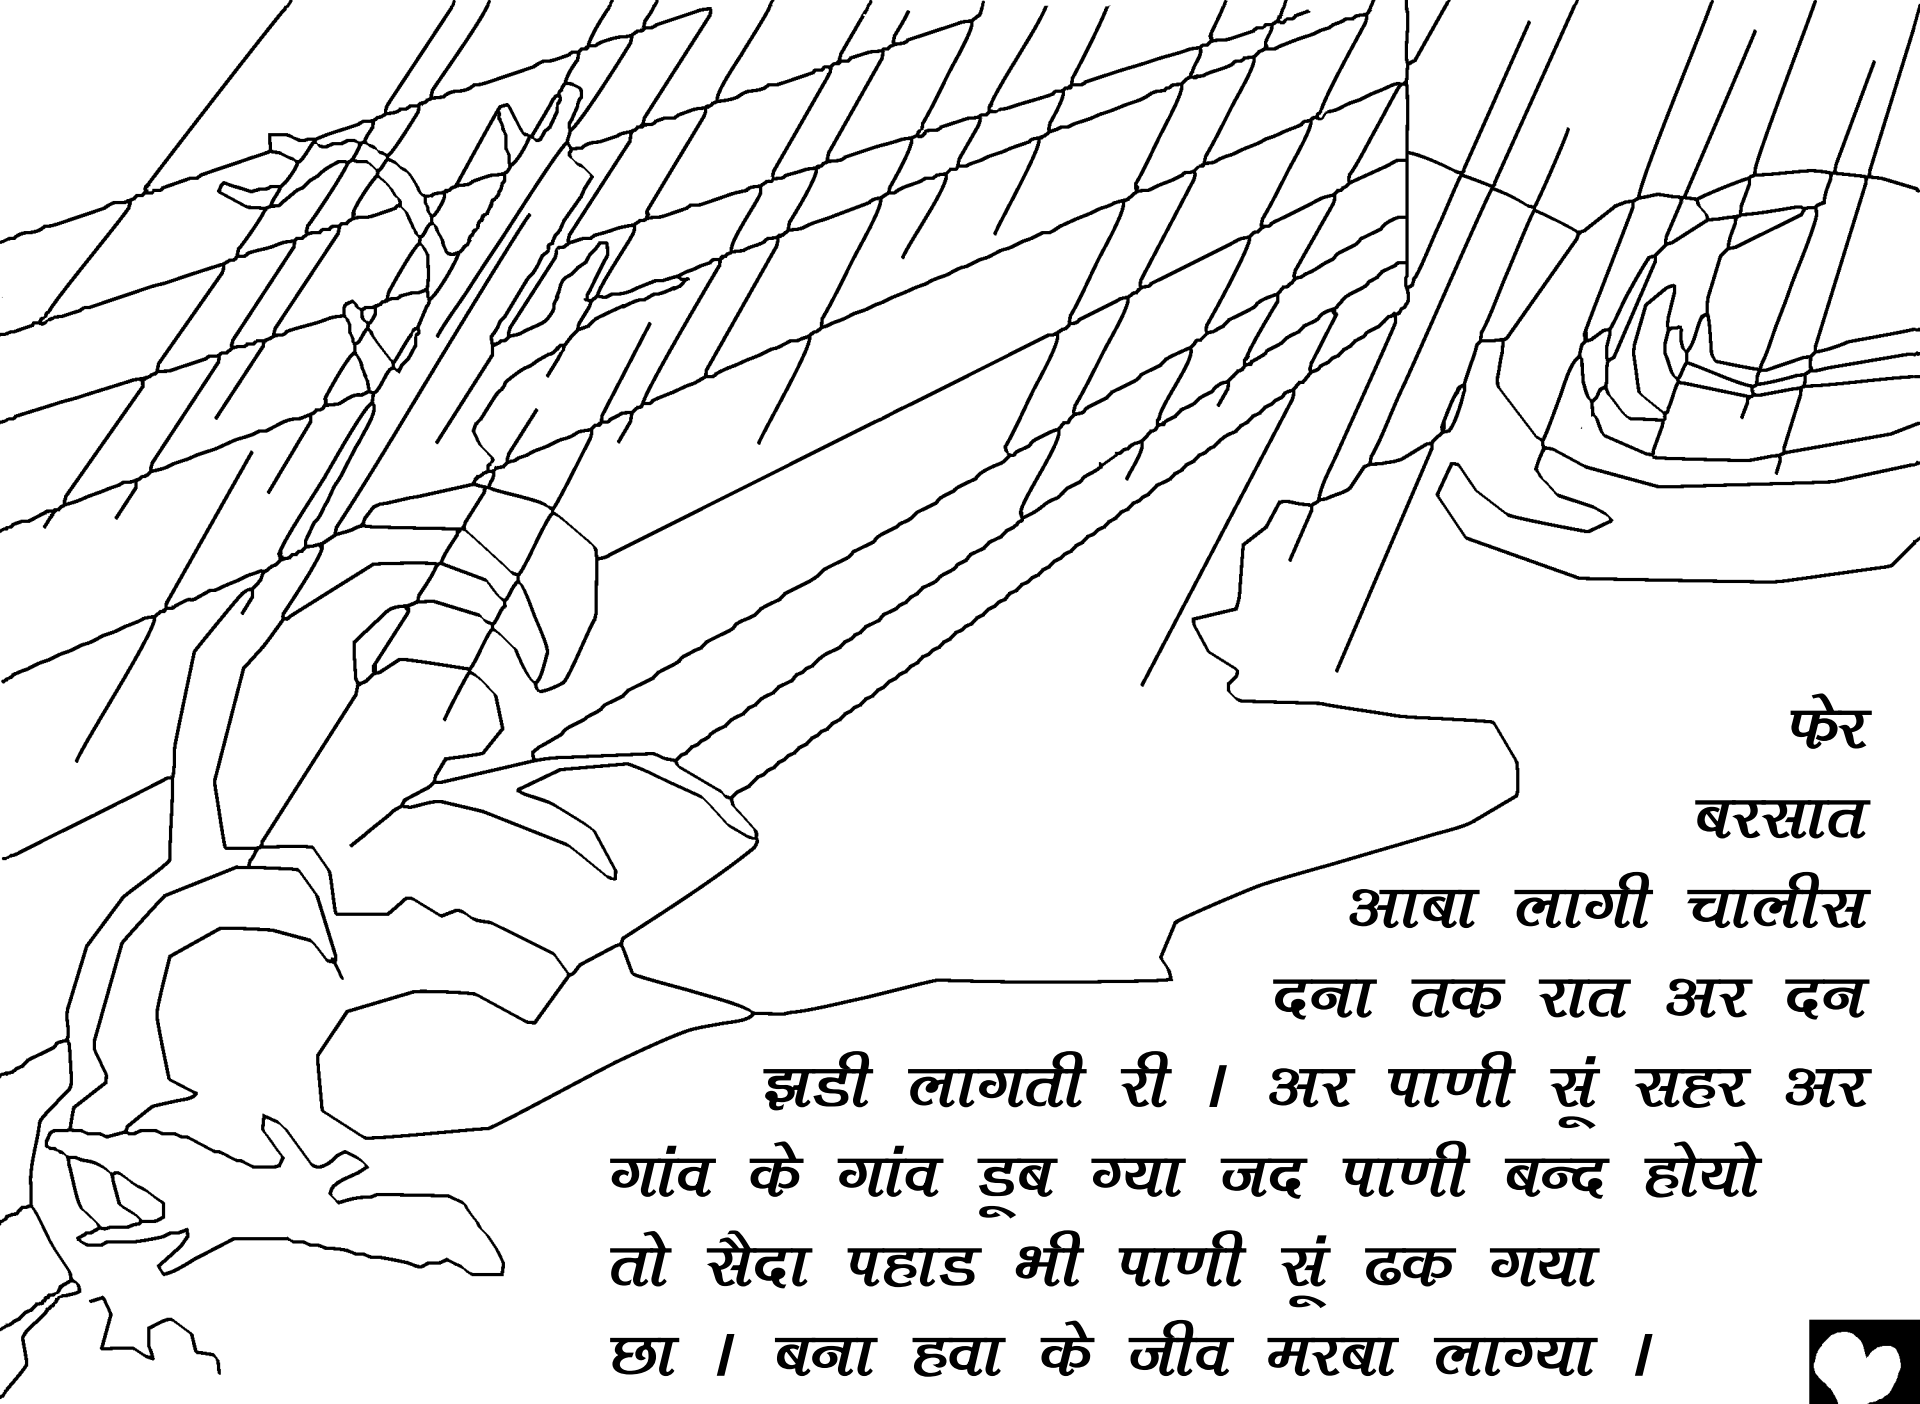 फेर
बरसात
आबा लागी चालीस
दना तक रात अर दन
झडी लागती री । अर पाणी सूं सहर अर
गांव के गांव डूब ग्या जद पाणी बन्द होयो
तो सैदा पहाड भी पाणी सूं ढक गया
छा । बना हवा के जीव मरबा लाग्या ।